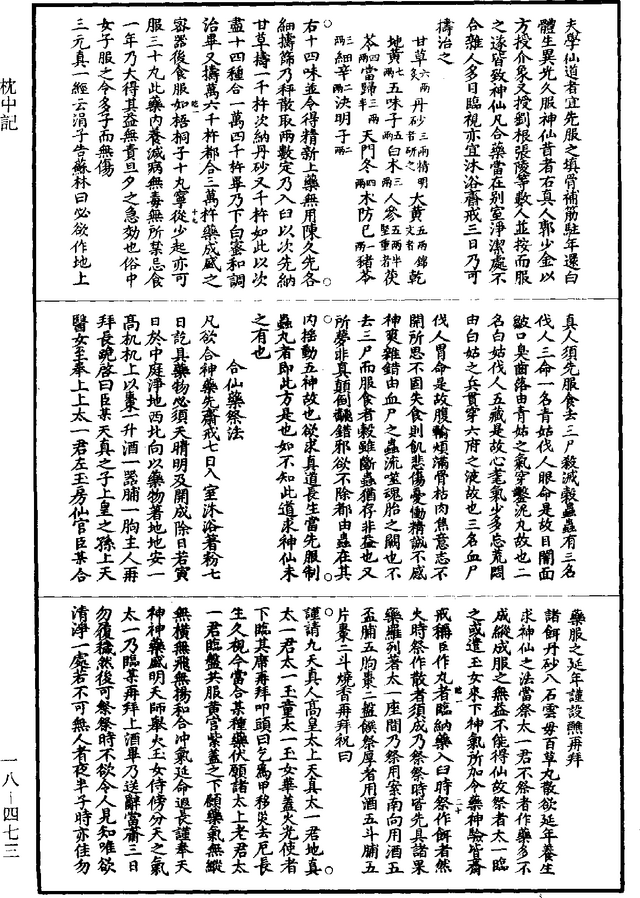 夫學仙道者宜先服之填骨補筋駐年還白
體生異光久服神仙昔者右真人郭少金以
方授介象又授劉根張陵等數人並按而服
之遂皆致神仙凡合藥當在別室淨潔處不
合雜人多目臨視亦宜沐浴齋戒三日乃可
擣治之
甘草六兩炙 丹砂三兩精明者研之 大黃五兩錦文者 乾
地黃七兩 五味子五兩 白朮三兩 人參五兩半堅重者 茯
苓四兩 當歸三兩 天門冬四兩 木防已一兩 豬苓
三兩 細辛二兩 決明子二兩
右十四味並令得精新上藥無用陳久先各
細擣篩乃秤散取兩數定乃入臼以次先納
甘草擣一千杵次納丹砂又千杵如此以次
盡十四種合一萬四千杵畢乃下白蜜和調
治畢又擣萬六千杵都合三萬杵藥成盛之
密器後食服如梧桐子十九寧從少起亦可
服三十丸此藥內養滅病無毒無所某忌食
一年乃大得其益無責旦夕之急効也俗中
女子服之令多子而無傷
三元真一經云涓子告蘇林曰必欲作地上
真人須先服食去三尸殺滅穀蟲蟲有三名
伐人三命一名青姑伐人眼命是故目闇面
皺口臭齒落由青姑之氣穿鑿泥丸故也二
名白姑伐人五藏是故心耄氣少多忘荒悶
由白姑之兵貫穿六府之液故也三名血尸
伐人胃命是故腹輪煩滿骨枯肉焦意志不
開所思不固失食則飢悲傷憂慟精誠不感
神爽雜錯由血尸之蟲流噬魂胎之關也不
去三尸而服食者穀雖斷蟲猶存非益也又
所夢非真顛倒翻錯邪欲不除都由蟲在其
內搖動五神故也欲求真道長生當先服制
蟲丸者即此方是也如不知此道求神仙未
之有也
合仙藥祭法
凡欲合神藥先齋戒七日入室沐浴著粉七
日訖具藥物必須天晴明及開成除日若寅
日於中庭淨地西北向以藥物著地地安一
髙机机上以棗一升酒一器脯一朐主人再
拜長跪啓曰臣某天真之子上皇之孫上天
醫女至奉上上太一君左玉房仙官臣某合
藥服之延年謹設醮再拜
諸餌丹砂八石雲母百草丸散欲延年養生
求神仙之法當祭太一君不祭者作藥多不
成縱成服之無益不能得仙故祭者太一臨
之或遣玉女來下神氣所加令藥神驗皆齋
戒稱臣作丸者臨納藥入臼時祭作餌者然
火時祭作散者須成乃祭祭時皆先具諸果
藥羅列著太一座間乃祭用案南向用酒五
盃脯五朐棗二盤餱祭厚者用酒五斗脯五
片棗二斗燒香再拜祝曰
謹請九天真人髙皇太上天真太一君地真
太一君太一玉童太一玉女華蓋火光使者
下臨其席再拜叩頭曰乞為甲移災去厄長
生久視今當合某種藥伏願諸太上老君太
一君臨盤共服黃官紫蓋之下願藥氣無縱
無橫無飛無揚和合沖氣延命遐長謹奉天
神神藥盛明天師舉火玉女侍傍分天之氣
太一乃臨某再拜上酒畢乃送辭當齋三日
勿復穢然後可祭祭時不欲令人見知唯欲
清淨一處若不可無人者夜半子時亦佳勿
枕中記
一八－四七三